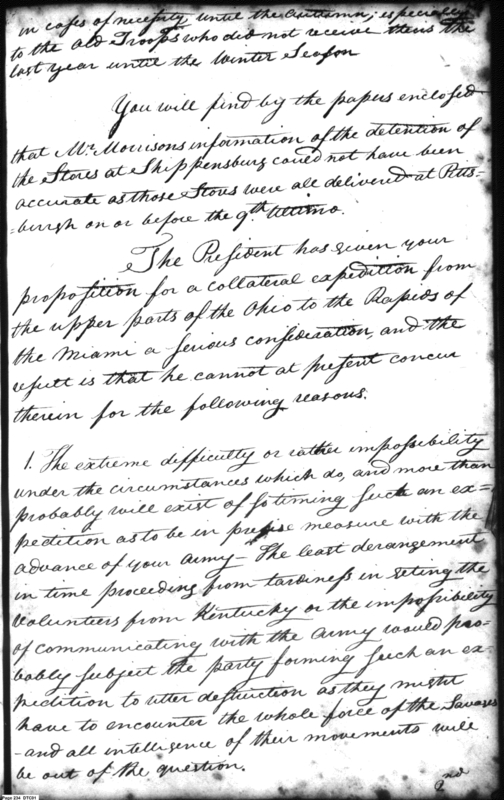 in cases of necessity until the Autumn; especially
to the Old Troops who did not receive theirs the
last year until the Winter Season
You will find by the papers enclosed
that Mr. Morrisons information of the detention of
the Stores at Shippensburg could not have been
accurate as those Stores were all delivered at Pitts-
-burgh on or before the 9th Ultimo.
The President has given your
proposition for a collateral expedition from
the upper parts of the Ohio to the Rapids of
the Miami a serious consideration, and the
result is that he cannot at present concur
therein for the following reasons.
1. The extreme difficulty or rather impossibility
under the circumstances which do, and more than
probably will exist of so timing such an ex=
pedition as to be in precise measure with the
advance of your army - The least derangement
in time proceeding from tardiness in the
Volunteers from Kentucky or the impossibility
of communicating with the army would pro=
bably subject the party forming such an ex-
pedition to utter destruction as they might
have to encounter the whole force of the Savages
- and all intelligence of their movements will
be out of the question.
2nd
Page 234 DTC01